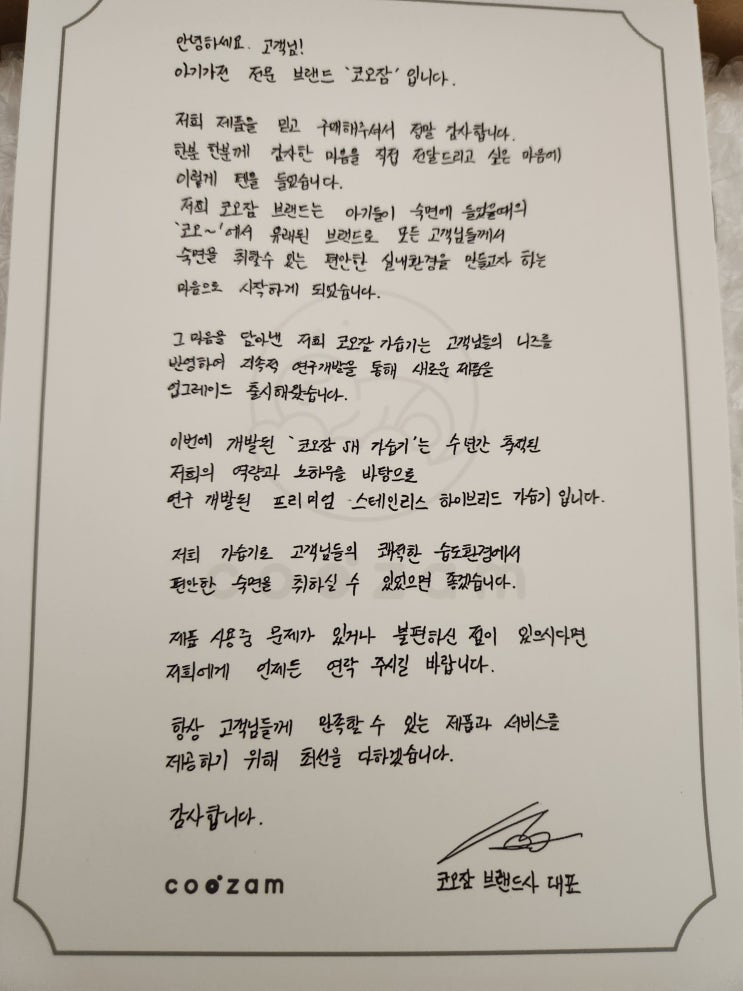 안녕하세요. 고객님!
아기가전 전문 브랜드 '코오잠' 입니다.
저희 제품을 믿고 구매해주셔서 정말 감사합니다.
한분 한분께 감사한 마음을 직접 전달드리고 싶은 마음에
이렇게 펜을 들었습니다.
저희 코오잠 브랜드는 아기들이 숙면에 들었을때의
'코오~'에서 유래된 브랜드로 모든 고객님들께서
숙면을 취할수 있는 편안한 실내환경을 만들고자 하는
마음으로 시작하게 되었습니다.
그 마음을 담아낸 저희 코오잠 가습기는 고객님들의 니즈를
반영하여 지속적 연구개발을 통해 새로운 제품을
업그레이드 출시해왔습니다.
이번에 개발된 '코오잠 SH 가습기'는 수년간 축적된
저희의 역량과 노하우를 바탕으로
연구 개발된 프리미엄 스테인리스 하이브리드 가습기 입니다.
저희 가습기로 고객님들의 쾌적한 습도환경에서
편안한 숙면을 취하실 수 있었으면 좋겠습니다.
제품 사용중 문제가 있거나 불편하신 점이 있으시다면
저희에게 언제든 연락 주시길 바랍니다.
항상 고객님들께 만족할 수 있는 제품과 서비스를
제공하기 위해 최선을 다하겠습니다.
감사합니다.
coozam
코오잠 브랜드사 대표